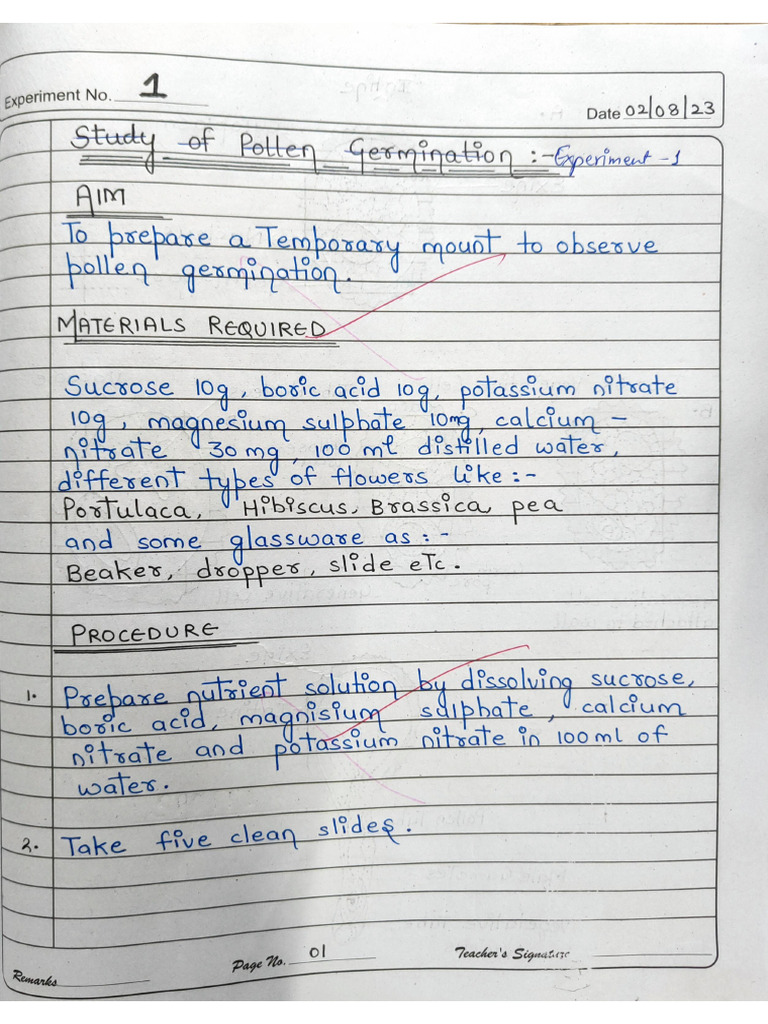 Experiment No. 1
Date 02/08/23
Study of Pollen Germination :- Experiment -1
AIM
To prepare a Temporary mount to observe
pollen germination.
MATERIALS REQUIRED
Sucrose 10g, boric acid 10g, potassium nitrate
10g, magnesium sulphate 10mg, calcium -
nitrate 30 mg, 100 ml distilled water,
different types of flowers like :-
Portulaca, Hibiscus, Brassica, pea
and some glassware as : -
Beaker, dropper, slide etc.
PROCEDURE
1. Prepare nutrient solution by dissolving sucrose,
boric acid, magnisium sulphate, calcium
nitrate and potassium nitrate in 100 ml of
water.
2. Take five clean slides.
Remarks
Page No. 01
Teacher's Signature